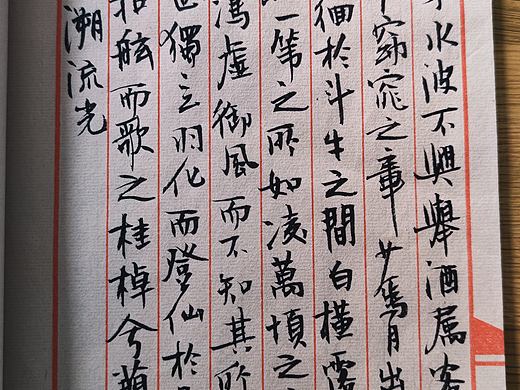 水波不興舉酒屬客
窈窕之章少焉月出
徊於斗牛之間白橫露
一葦之所如凌萬頃之
馮虛御風而不知其所
世獨立羽化而登仙於
扣舷而歌之桂棹兮蘭
溯流光